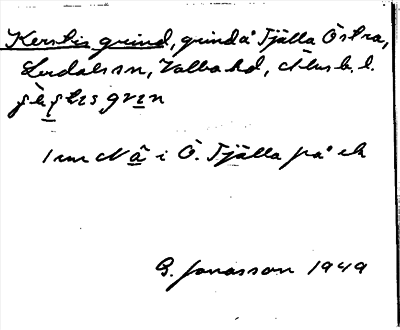 Kerstis grind, grind å Tjälla Östra,
Lerdals sn, Valbo hd, Älvsb. l.
1 mm N å i Ö. Tjälla på ek
G. Jonasson 1949